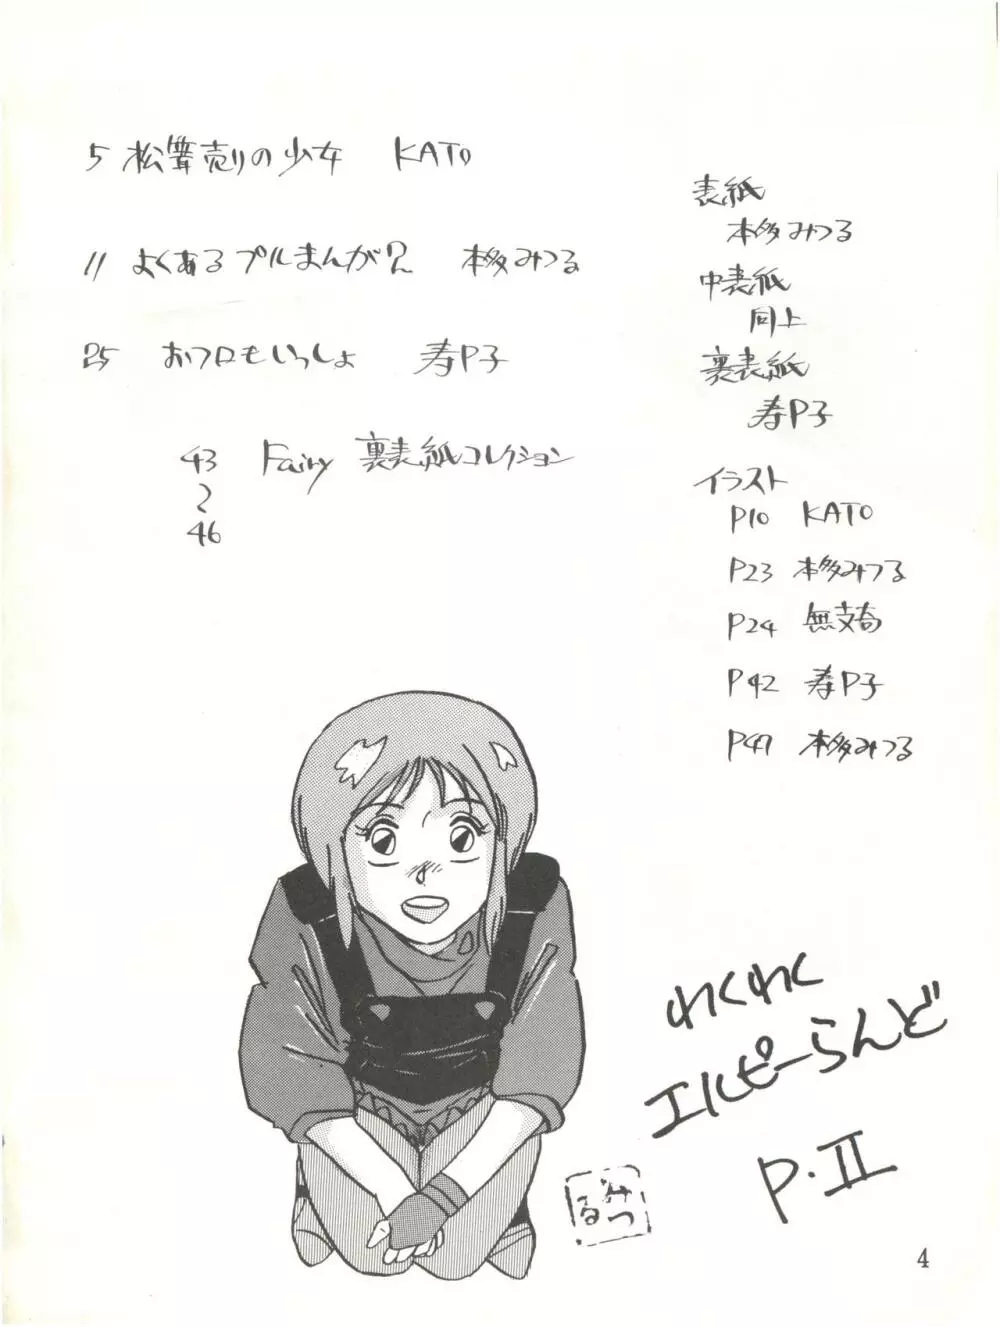 5 松茸売りの少女 KATO
11 よくあるプルまんが? 本多みつる
25 おフロもいっしょ 寿P子
43 Fairy 裏表紙コレクション
〜
46
表紙
本多みつる
中表紙
同上
裏表紙
寿P子
イラスト
P10 KATO
P23 本多みつる
P24 無支奇
P42 寿P子
P47 本多みつる
わくわく
エルピーらんど
P・II
みつ
る
4